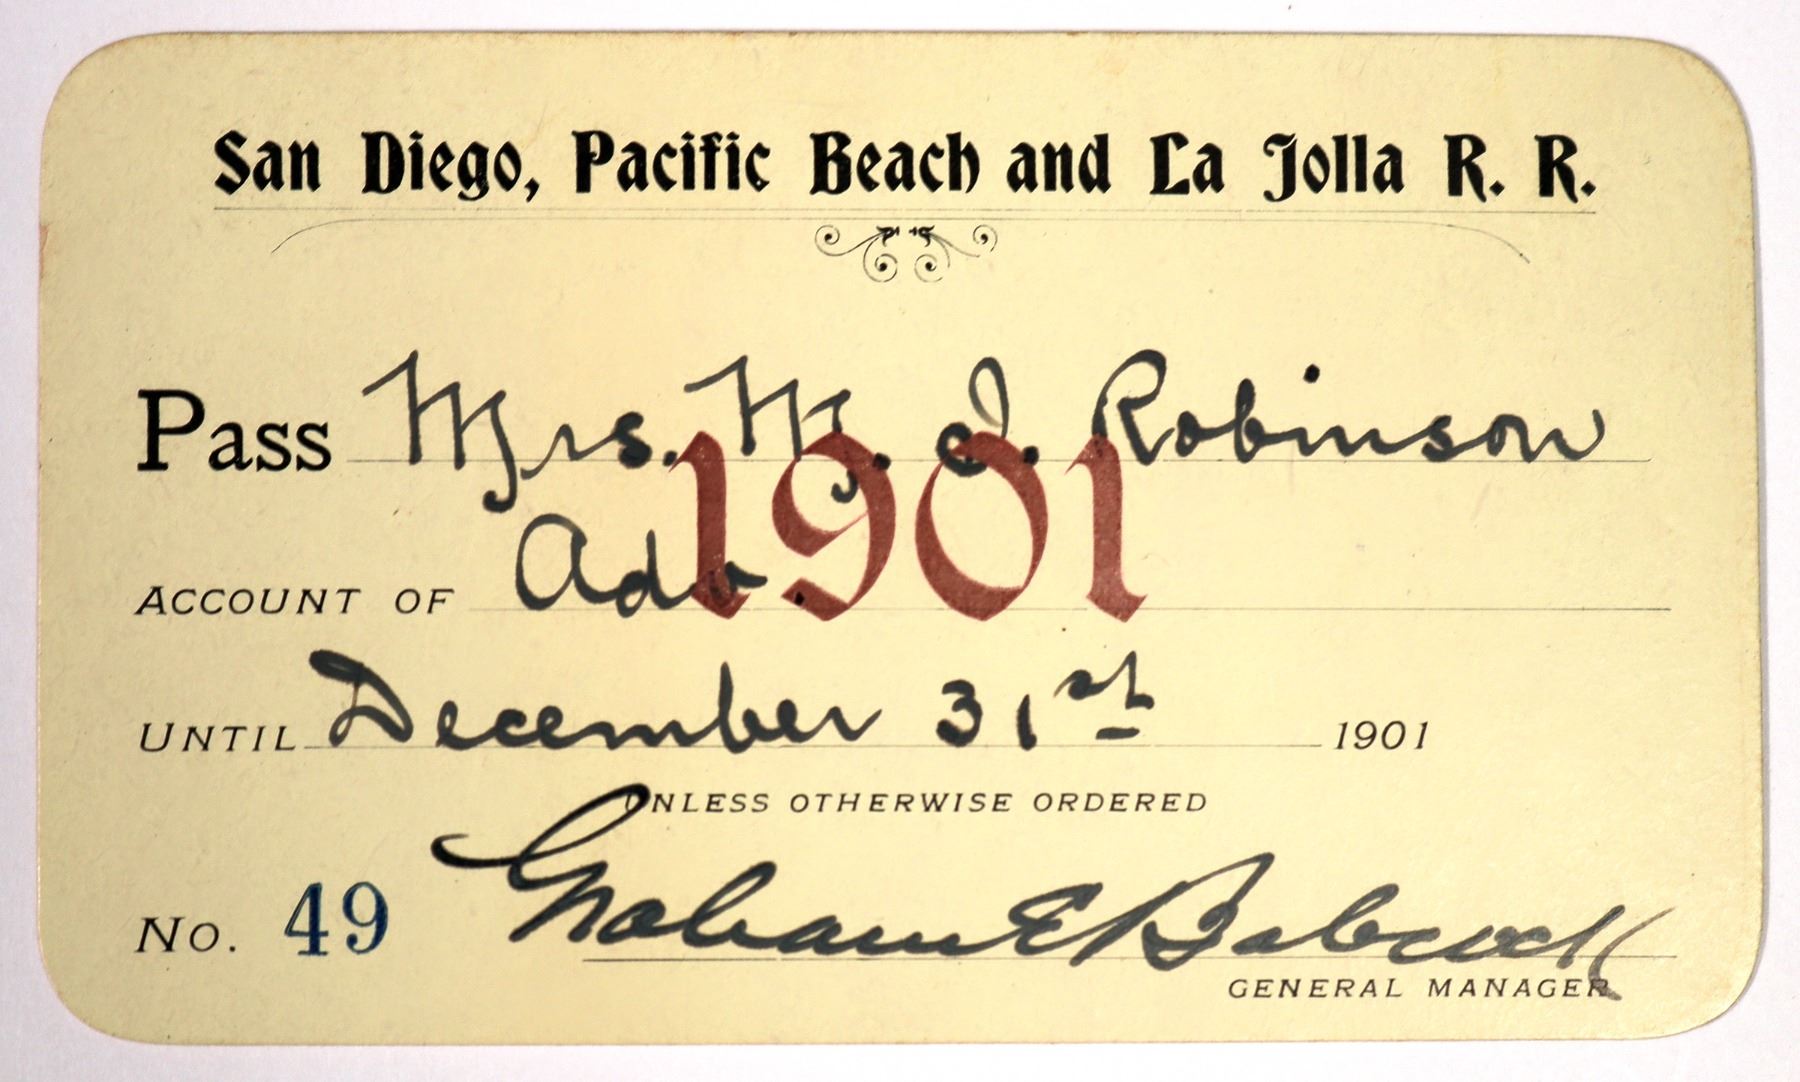 San Diego, Pacific Beach and La Jolla R. R.
Pass Mrs. M. J. Robinson
1901
ACCOUNT OF Adv.
UNTIL December 31st 1901
UNLESS OTHERWISE ORDERED
No. 49 Graham E Babcock
GENERAL MANAGER